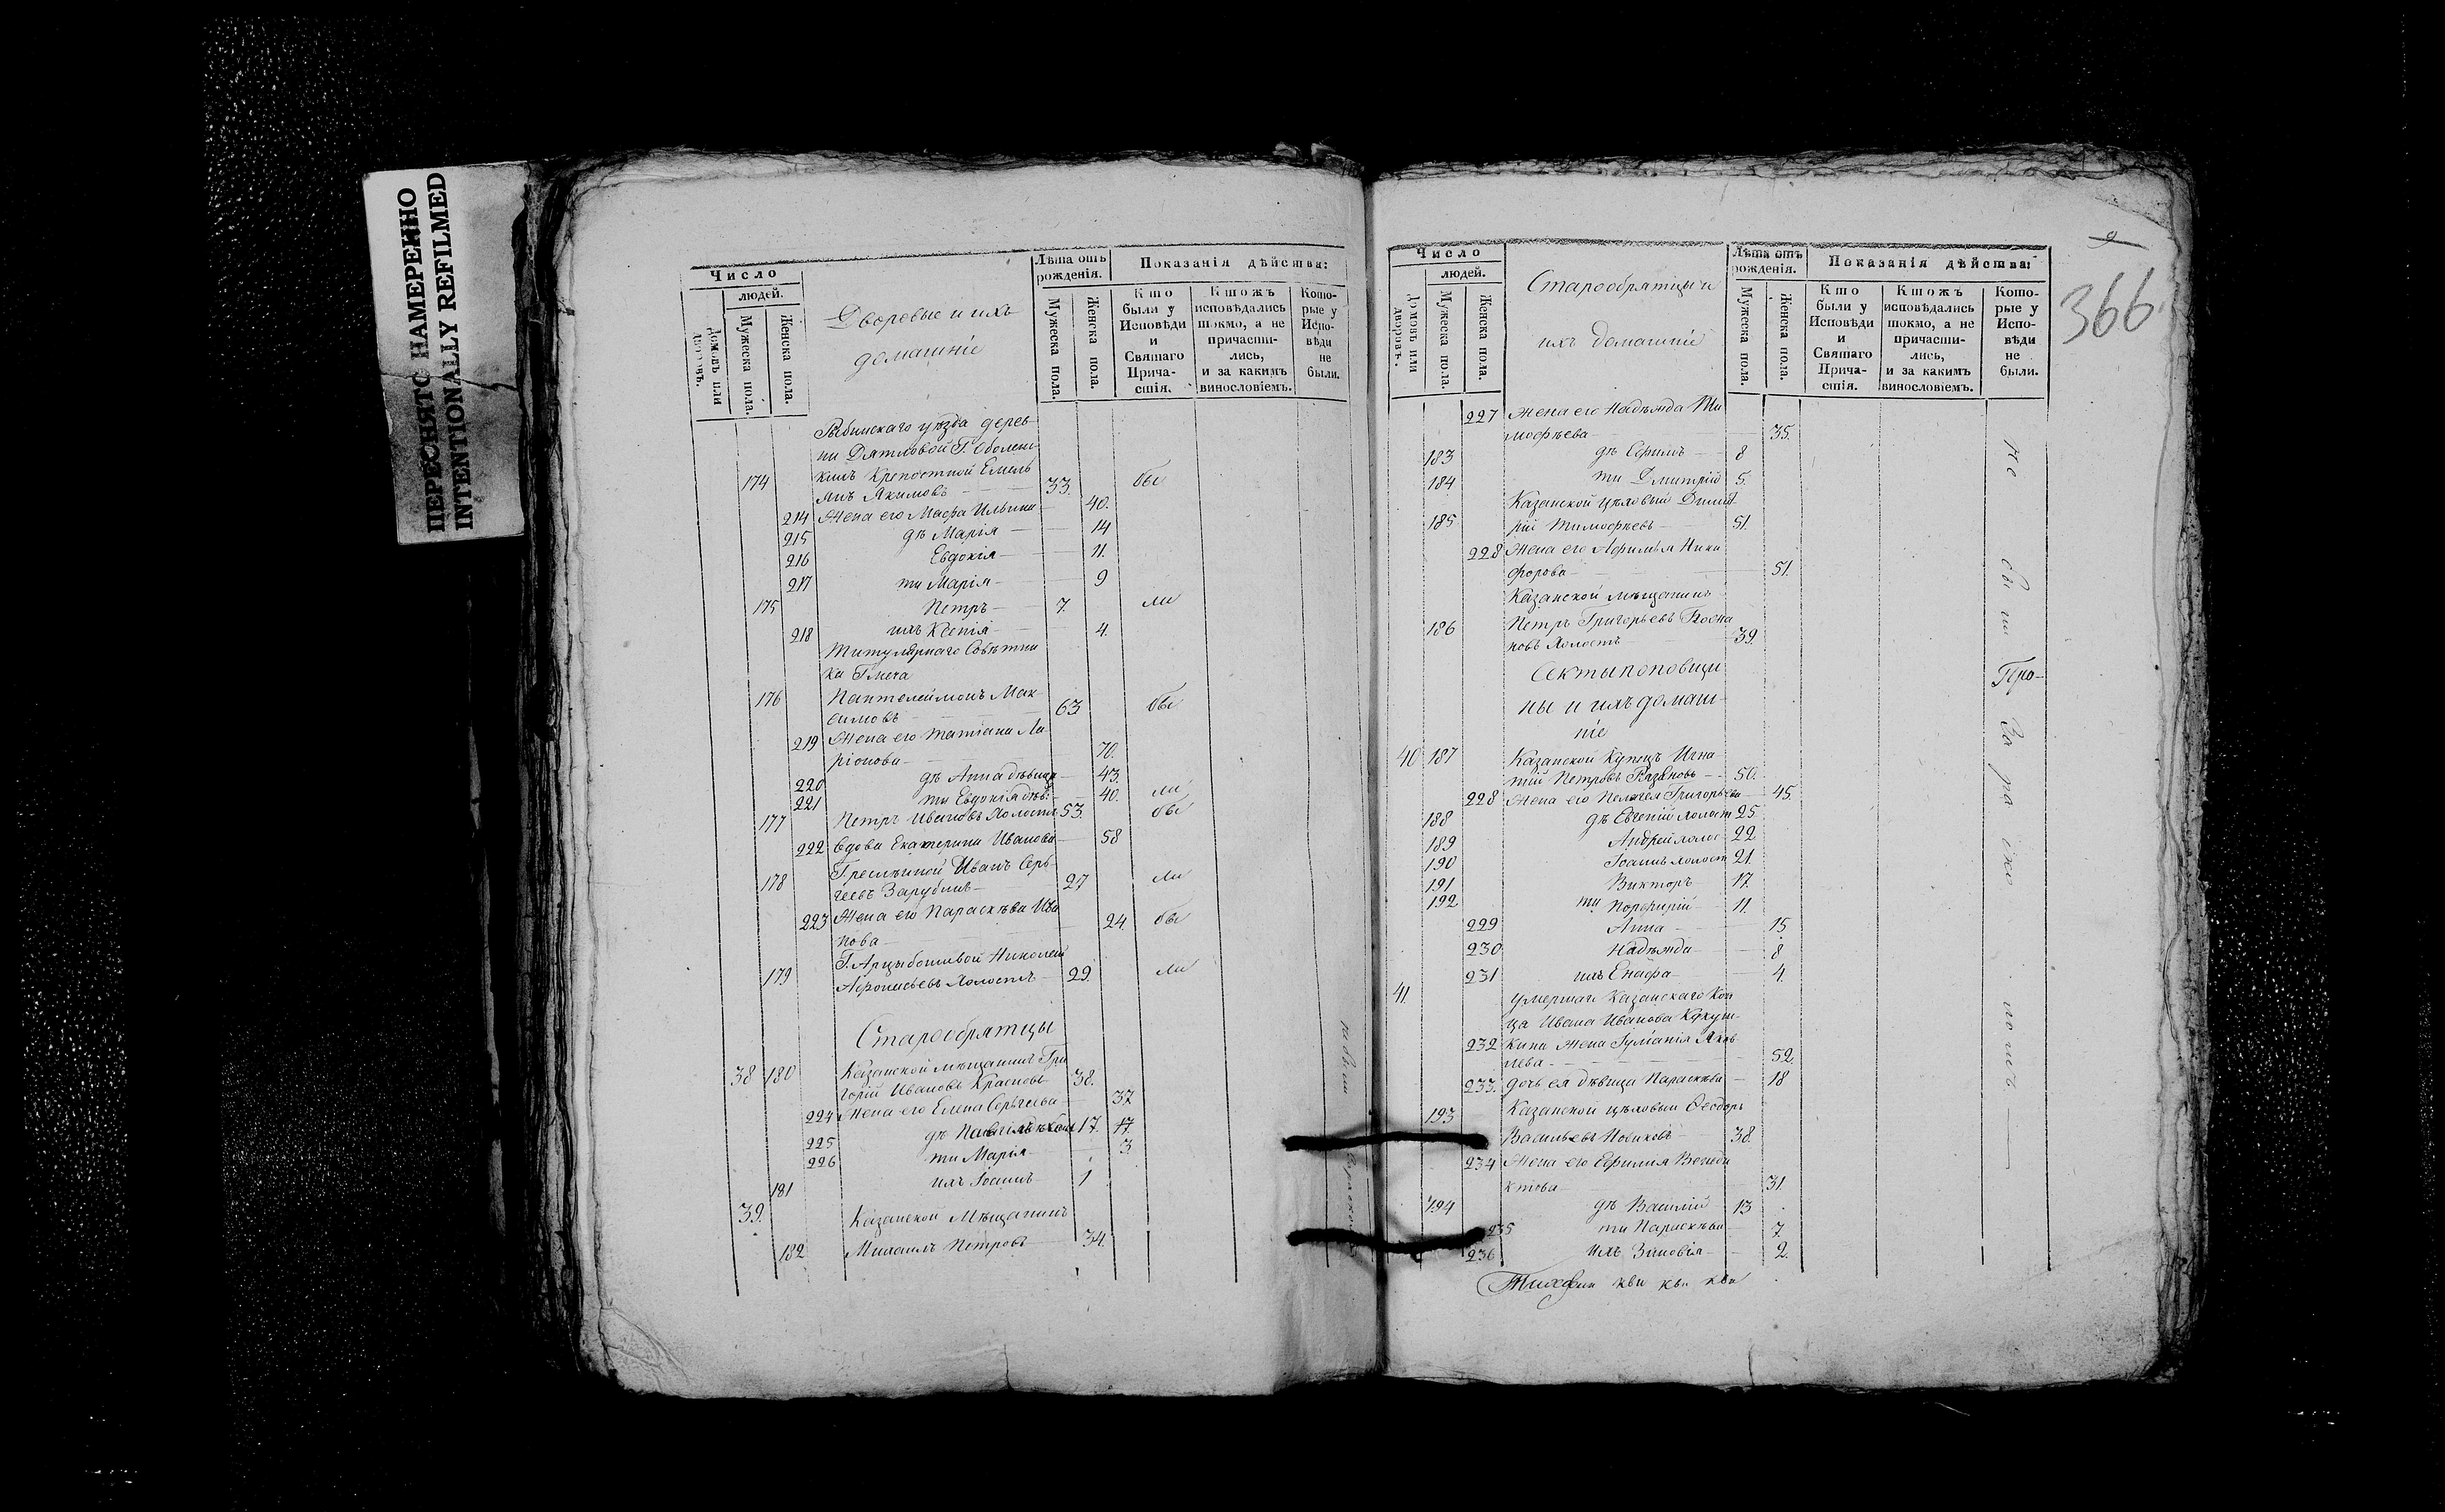 ПЕРЕСНЯТО НАМЕРЕННО
INTENTIONALLY REFILMED
Число
людей.
Домовъ или дворовъ.
Мужеска пола.
Женска пола.
Дворовые и ихъ
домашніе
Лѣта отъ рожденія.
Мужеска пола.
Женска пола.
Показанія дѣйства:
Кто были у Исповѣди и Святаго Причастія.
Ктожъ исповѣдались токмо, а не причастились, и за какимъ винословіемъ.
Которые у Исповѣди не были.
Рыбинскаго уѣзда дерев
ни Дятловой Г. Оболенс
174 кимъ Крепостной Емель
янъ Якимовъ 33. бы
214 Жена его Марфа Ильина 40.
215 дѣ Марія 14
216 Евдокія 11.
217 ти Марія 9
175 Петръ 7. ли
218 ихъ Ксенія 4.
Титулярнаго Совѣтни
ка
176 Пантелеймонъ Мак
симовъ 63 бы
219 Жена его Татіана Ла
ріонова 70.
220 дѣ Анна дѣвица 43.
221 ти Евдокія дѣв: 40. ли
177 Петръ Ивановъ Холостъ 53. бы
222 Вдова Екатерина Иванова 58
Иванъ Серь
178 геевъ Зарубинъ 27 ли
223 Жена его Параскѣва Ива
нова 24 бы
Г. Арцыбошевой Николай
179 Афонасьевъ Холостъ 29. ли
Старообрятцы
38 180 Казанской мѣщанинъ Гри
горій Ивановъ Красновъ 38.
224 Жена его Елена Сергеева 37
225 дѣ 17. 17.
226 ти Марія 3.
181 ихъ Іоаннъ 1
39. Казанской Мѣщанинъ
182 Михаилъ Петровъ 34.
9
366.
Число
людей.
Домовъ или дворовъ.
Мужеска пола.
Женска пола.
Старообрятцы и
ихъ домашніе
Лѣта отъ рожденія.
Мужеска пола.
Женска пола.
Показанія дѣйства:
Кто были у Исповѣди и Святаго Причастія.
Ктожъ исповѣдались токмо, а не причастились, и за какимъ винословіемъ.
Которые у Исповѣди не были.
227 Жена его Надѣжда Ти
мофѣева 35.
183 дѣ Ефимъ 8
184 ти Дмитрій 5.
Казанской цѣховый Димит
185 рій Тимофѣевъ 51.
228 Жена его Афимья Ники
форова 51.
Казанской мѣщанинъ
186 Петръ Григорьевъ
новъ Холостъ 39.
Секты поповщи
ны и ихъ домаш
ніе
40 187 Казанской Купецъ Игна
тій Петровъ Рязановъ 50.
228 Жена его Пелагея Григорьева 45.
188 дѣ Евгеній холост 25
189 Андрей холос 22.
190 Іоаннъ холост 21.
191 Викторъ 17.
192 ти Порфирій 11.
229 Анна 15
230 Надѣжда 8
231 ихъ 4.
41. умершаго Казанскаго Куп
ца Ивана Иванова Кукуш
232 кина Жена Гуліанія Яков
лева 52.
233. дочь ея дѣвица Параскѣва 18
193 Казанской цѣховый Ѳеодоръ
Васильевъ Новиковъ 38.
234 Жена его Ефимія Венеди
ктова 31.
194 дѣ Василій 13
235 ти Параскѣва 7
236 ихъ Зиновія 2.